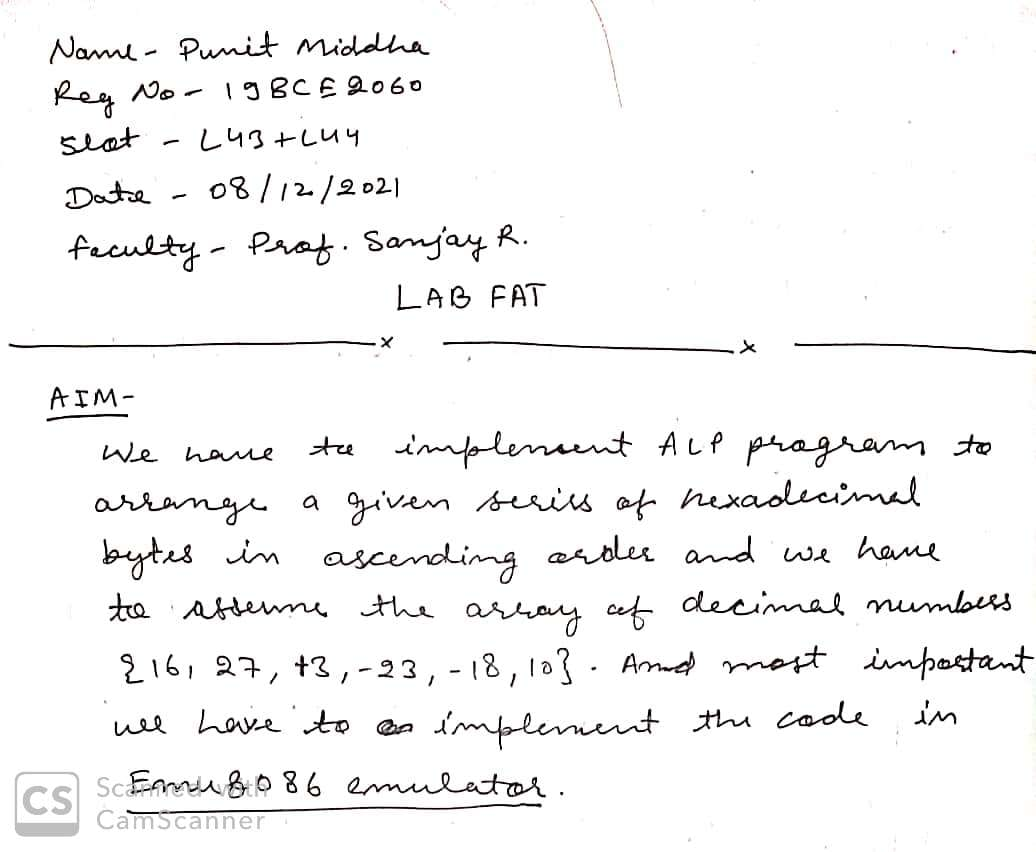 Name - Punit Middha
Reg No - 19BCE2060
Slot - L43+L44
Date - 08/12/2021
Faculty - Prof. Sanjay R.
LAB FAT
x x
AIM-
We have to implement ALP program to
arrange a given series of hexadecimal
bytes in ascending order and we have
to assume the array of decimal numbers
{16, 27, +3, -23, -18, 10}. And most important
we have to implement the code in
Emu8086 emulator.
CS Scanned with
CamScanner